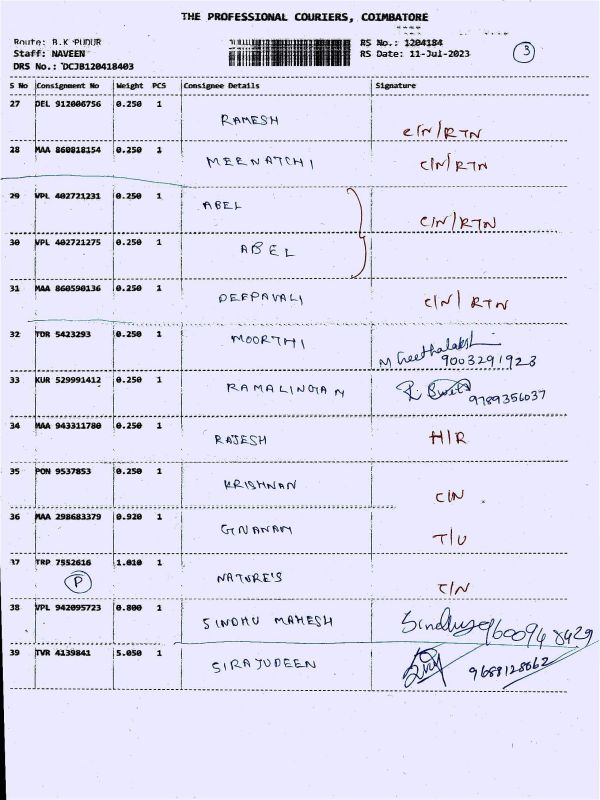 THE PROFESSIONAL COURIERS, COIMBATORE
Route: B.K PUDUR
RS No.: 1204184
Staff: NAVEEN
RS Date: 11-Jul-2023
3
DRS No.: DCJB120418403
S No Consignment No Weight PCS Consignee Details Signature
27 DEL 912006756 0.250 1 RAMESH C/N/RTN
28 MAA 860818154 0.250 1 MEENATCHI C/N/RTN
29 VPL 402721231 0.250 1 ABEL C/N/RTN
30 VPL 402721275 0.250 1 ABEL
31 MAA 860590136 0.250 1 DEEPAVALI C/N/RTN
32 TDR 5423293 0.250 1 MOORTHI M Geethalakshmi
9003291923
33 KUR 529991412 0.250 1 RAMALINGAM
9789356037
34 MAA 943311780 0.250 1 RAJESH H/R
35 PON 9537853 0.250 1 KRISHNAN C/N
36 MAA 298683379 0.920 1 GNANAM T/U
37 TRP 7552616 1.010 1 NATURE'S C/N
P
38 VPL 942095723 0.800 1 SINDHU MAHESH 9600948429
39 TVR 4139841 5.050 1 SIRAJUDEEN 9688128662